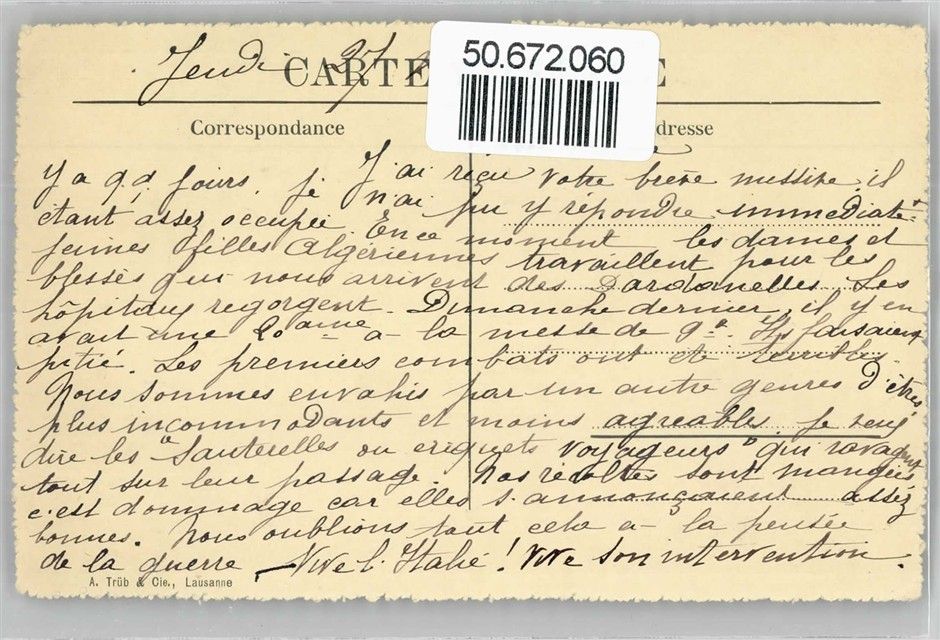 Jeudi 27
CARTE
50.672.060
Correspondance
dresse
J'ai reçu votre brève missive il
y a qq jours. je n'ai pu y répondre immédiate-
étant assez occupée. En ce moment les dames et
jeunes filles Algériennes travaillent pour les
blessés qui nous arrivent des Dardanelles Les
hôpitaux regorgent. Dimanche dernier, il y en
avait une 20aine à la messe de 9h. Ils faisaient
pitié. Les premiers combats ont été terribles.
Nous sommes envahis par un autre genres d'êtres
plus incommodants et moins agréables. Je veux
dire les "Sauterelles ou criquets voyageurs" qui ravagent
tout sur leur passage. Nos récoltes sont mangées,
c'est dommage car elles s'annonçaient assez
bonnes. Nous oublions tout cela à la pensée
de la guerre - Vive l'Italie! Vive son intervention.
A. Trüb & Cie., Lausanne